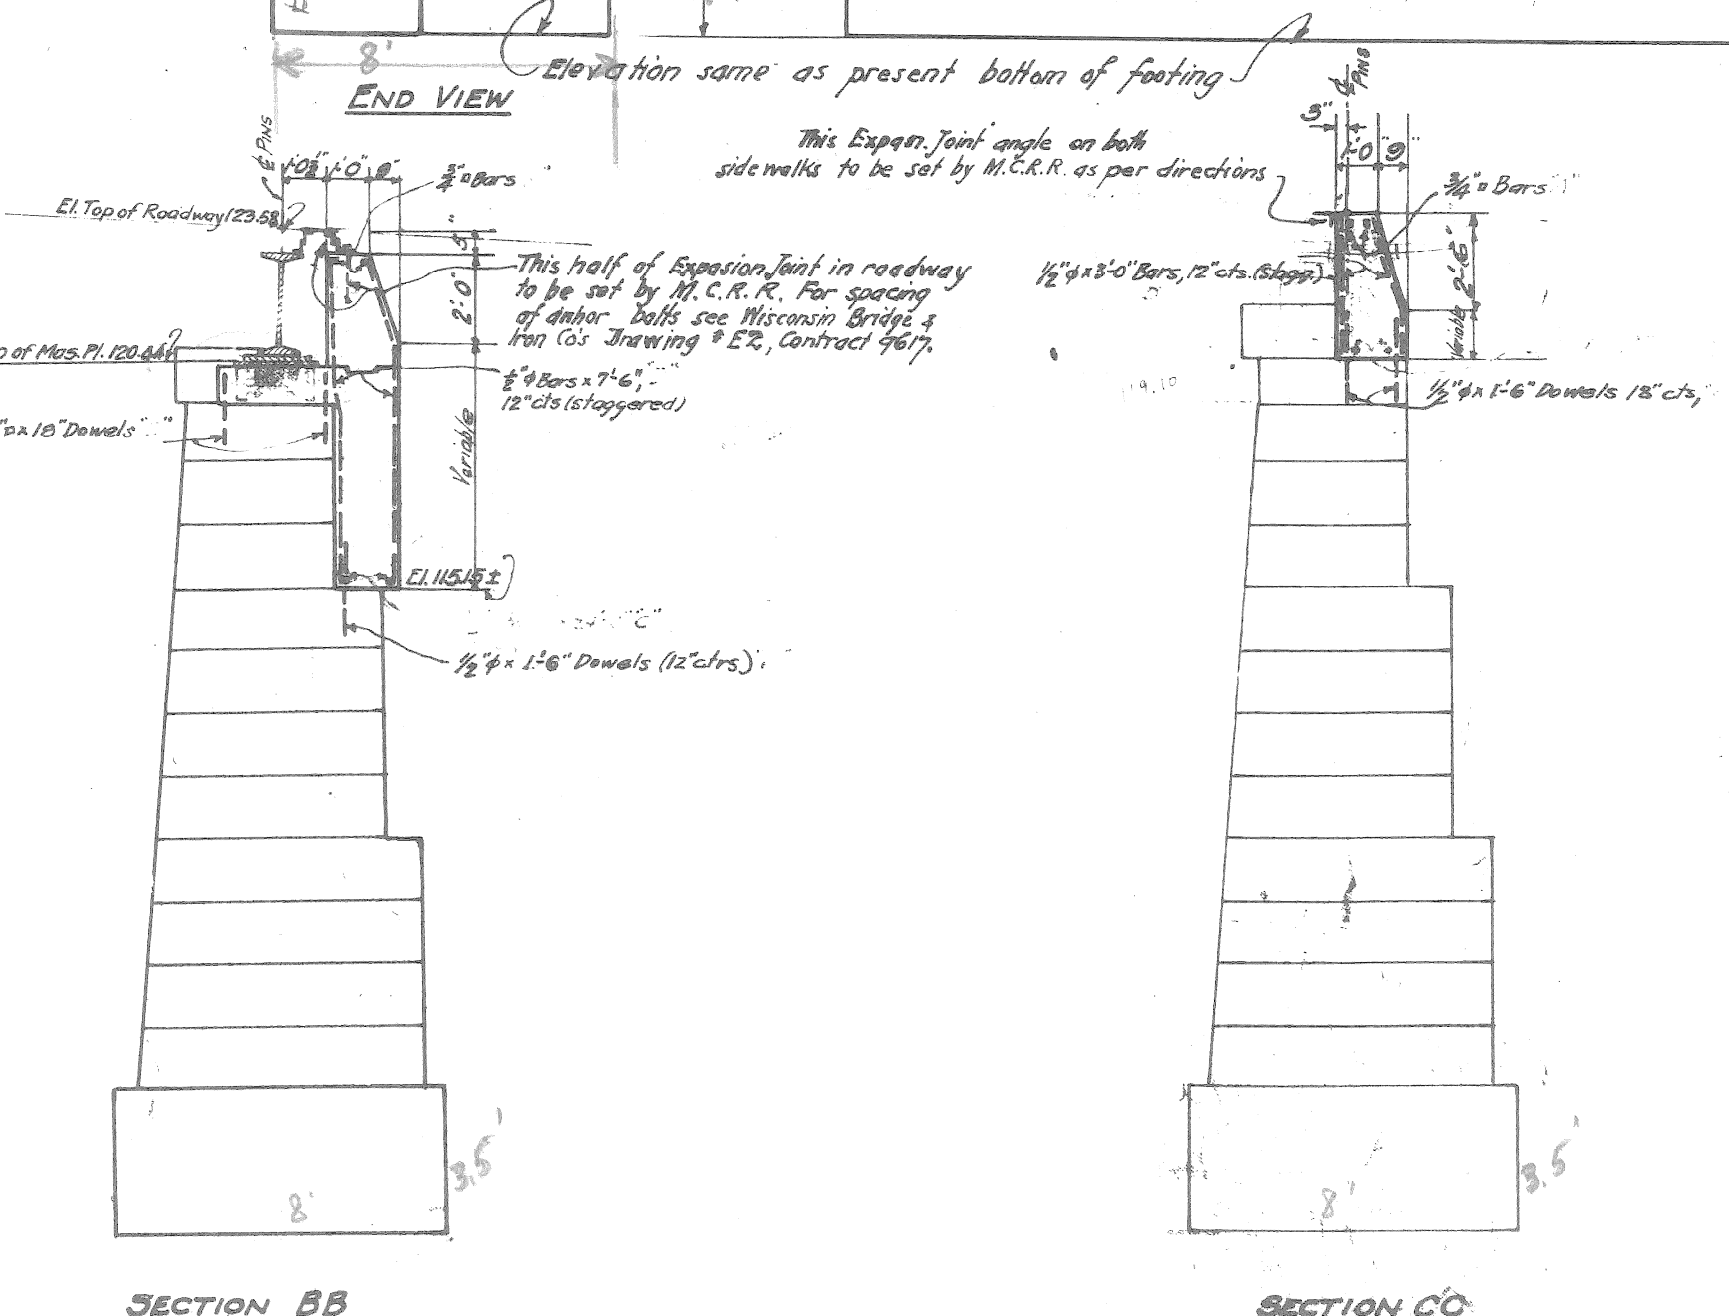 8'
Elevation same as present bottom of footing
END VIEW
℄ PINS
1'-0½" 1'-0" 9"
¾"▫Bars
El. Top of Roadway 123.58
5"
This half of Expasion Joint in roadway
to be set by M.C.R.R. For spacing
of anhor bolts see Wisconsin Bridge &
Iron Co's Drawing # E2, Contract 9617.
2'-0"
of Mas. Pl. 120.
½"φ Bars x 7'-6",
12" cts (staggered)
"▫x18" Dowels
Variable
El. 115.15±
"C"
½"φ x 1'-6" Dowels (12" ctrs)
3.5'
8'
SECTION BB
This Expan. Joint angle on both
sidewalks to be set by M.C.R.R. as per directions
℄ PINS
3"
1'-0" 9"
¾"▫ Bars
½"φ x 3'-0" Bars, 12" cts. (Stagg.)
2'-6"
Variable
19.10
½"φ x 1'-6" Dowels 18" cts,
3.5'
8'
SECTION CC